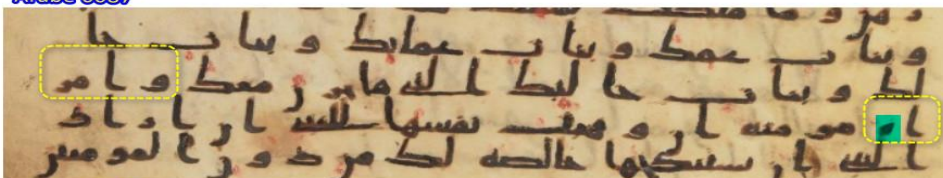 وما ملكت
وبنات عمك وبنات عماتك وبنات خا
لك وبنات خالتك التى هاجرن معك وامر
اه مومنه ان وهبت نفسها للنبى ان اراد
النبى ان يستنكحها خالصه لك من دون المومنين